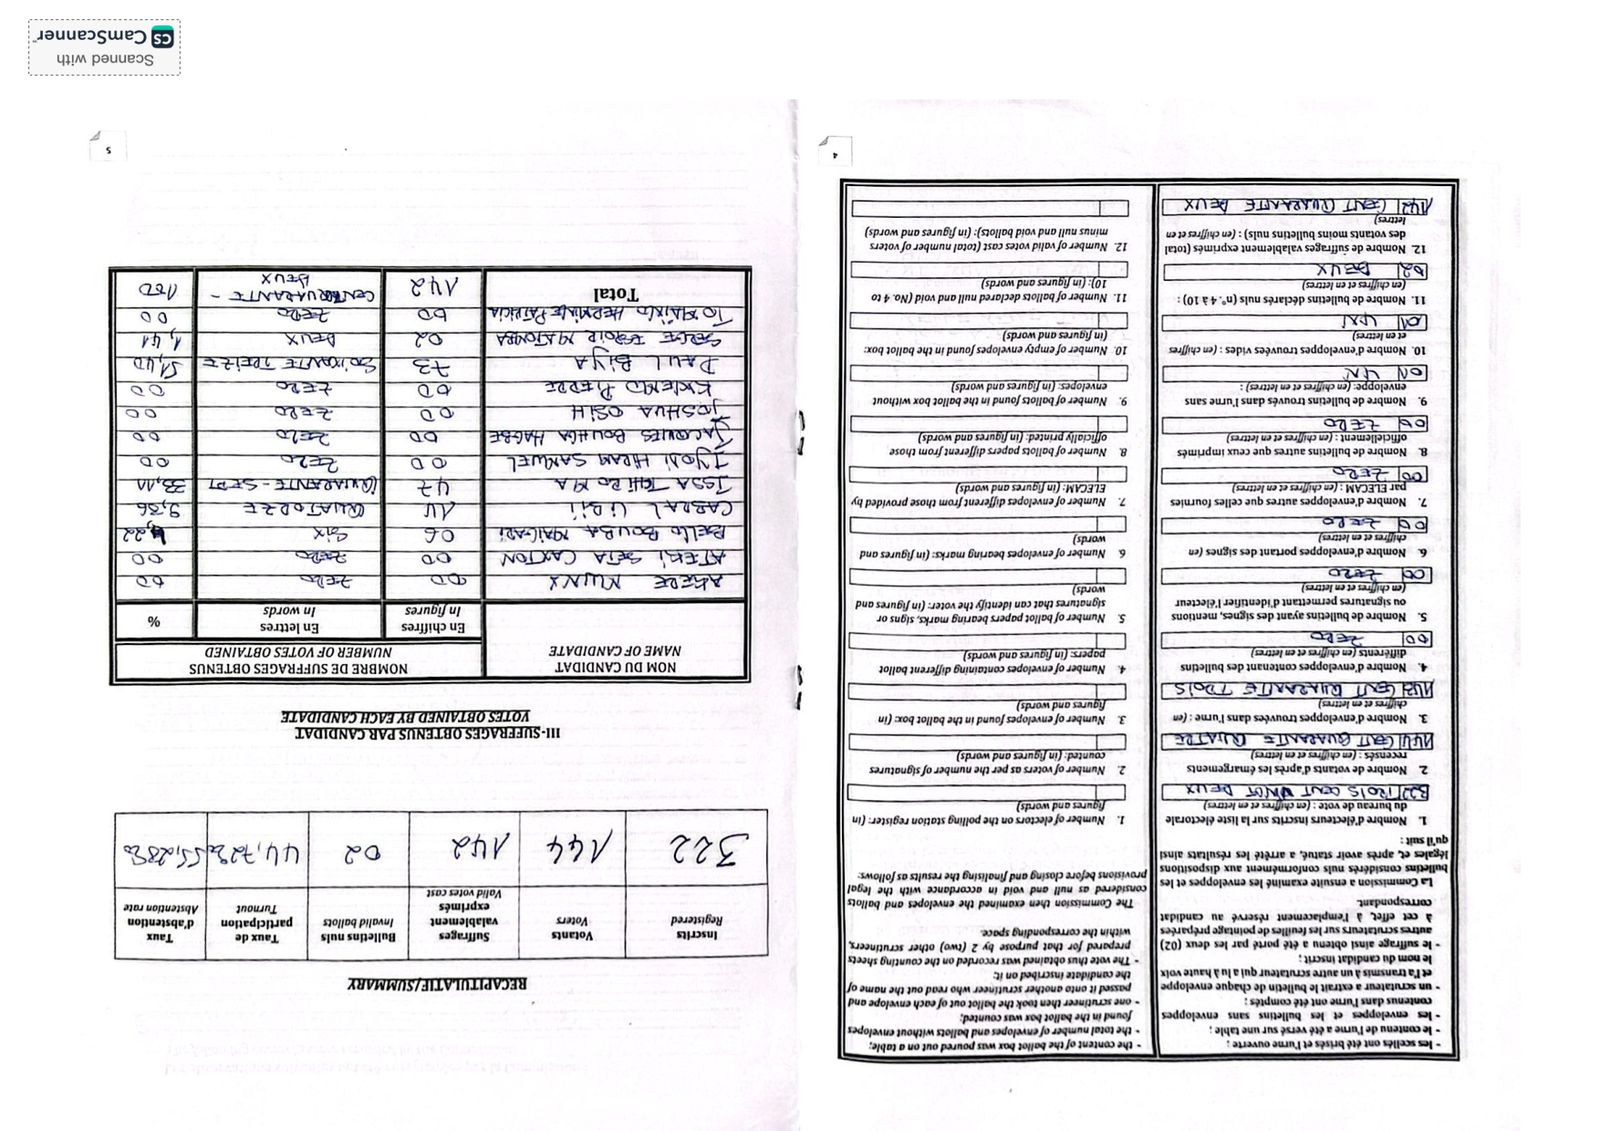 - les scellés ont été brisés et l'urne ouverte ;
- le contenu de l'urne a été versé sur une table ;
- les enveloppes et les bulletins sans enveloppes
contenus dans l'urne ont été comptés ;
- un scrutateur a extrait le bulletin de chaque enveloppe
et l'a transmis à un autre scrutateur qui a lu à haute voix
le nom du candidat inscrit ;
- le suffrage ainsi obtenu a été porté par les deux (02)
autres scrutateurs sur les feuilles de pointage préparées
à cet effet, à l'emplacement réservé au candidat
correspondant.
La Commission a ensuite examiné les enveloppes et les
bulletins considérés nuls conformément aux dispositions
légales et, après avoir statué, a arrêté les résultats ainsi
qu'il suit :
1. Nombre d'électeurs inscrits sur la liste électorale
du bureau de vote : (en chiffres et en lettres)
322 TROIS CENT VINGT DEUX
2. Nombre de votants d'après les émargements
recensés : (en chiffres et en lettres)
144 CENT QUARANTE QUATRE
3. Nombre d'enveloppes trouvées dans l'urne : (en
chiffres et en lettres)
143 CENT QUARANTE TROIS
4. Nombre d'enveloppes contenant des bulletins
différents (en chiffres et en lettres)
00 ZERO
5. Nombre de bulletins ayant des signes, mentions
ou signatures permettant d'identifier l'électeur
(en chiffres et en lettres)
00 ZERO
6. Nombre d'enveloppes portant des signes (en
chiffres et en lettres)
00 ZERO
7. Nombre d'enveloppes autres que celles fournies
par ELECAM : (en chiffres et en lettres)
00 ZERO
8. Nombre de bulletins autres que ceux imprimés
officiellement : (en chiffres et en lettres)
00 ZERO
9. Nombre de bulletins trouvés dans l'urne sans
enveloppe: (en chiffres et en lettres) :
01 UN
10. Nombre d'enveloppes trouvées vides : (en chiffres
et en lettres)
01 UN
11. Nombre de bulletins déclarés nuls (n°. 4 à 10) :
(en chiffres et en lettres)
02 DEUX
12. Nombre de suffrages valablement exprimés (total
des votants moins bulletins nuls) : (en chiffres et en
lettres)
142 CENT QUARANTE DEUX
- the content of the ballot box was poured out on a table;
- the total number of envelopes and ballots without envelopes
found in the ballot box was counted;
- one scrutineer then took the ballot out of each envelope and
passed it onto another scrutineer who read out the name of
the candidate inscribed on it;
- The vote thus obtained was recorded on the counting sheets
prepared for that purpose by 2 (two) other scrutineers,
within the corresponding space.
The Commission then examined the envelopes and ballots
considered as null and void in accordance with the legal
provisions before closing and finalising the results as follows:
1. Number of electors on the polling station register: (in
figures and words)
2. Number of voters as per the number of signatures
counted: (in figures and words)
3. Number of envelopes found in the ballot box: (in
figures and words)
4. Number of envelopes containing different ballot
papers: (in figures and words)
5. Number of ballot papers bearing marks, signs or
signatures that can identify the voter: (in figures and
words
6. Number of envelopes bearing marks: (in figures and
words)
7. Number of envelopes different from those provided by
ELECAM: (in figures and words)
8. Number of ballots papers different from those
officially printed: (in figures and words)
9. Number of ballots found in the ballot box without
envelopes: (in figures and words)
10. Number of empty envelopes found in the ballot box:
(in figures and words)
11. Number of ballots declared null and void (No. 4 to
10): (in figures and words)
12. Number of valid votes cast (total number of voters
minus null and void ballots): (in figures and words)
4
RECAPITULATIF/SUMMARY
Inscrits Registered
Votants Voters
Suffrages valablement exprimés Valid votes cast
Bulletins nuls Invalid ballots
Taux de participation Turnout
Taux d'abstention Abstention rate
322 144 142 02 44,72% 55,28%
III-SUFFRAGES OBTENUS PAR CANDIDAT
VOTES OBTAINED BY EACH CANDIDATE
NOM DU CANDIDAT NAME OF CANDIDATE
NOMBRE DE SUFFRAGES OBTENUS NUMBER OF VOTES OBTAINED
En chiffres In figures
En lettres In words
%
AKERE MUNA 00 ZERO 00
ATEKI SETA CAXTON 00 ZERO 00
BELLO BOUBA MAIGARI 06 SIX 4,22
CABRAL LIBII 14 QUATORZE 9,86
ISSA TCHIROMA 47 QUARANTE-SEPT 33,11
IYODI HIRAM SAMUEL 00 ZERO 00
JACQUES BOUHGA HAGBE 00 ZERO 00
JOSHUA OSIH 00 ZERO 00
KWEMO PIERRE 00 ZERO 00
PAUL BIYA 73 SOIXANTE TREIZE 51,40
SERGE ESPOIR MATOMBA 02 DEUX 1,41
TOMAINO HERMINE PATRICIA 00 ZERO 00
Total 142 CENT QUARANTE-DEUX 100
5
Scanned with
CS CamScanner